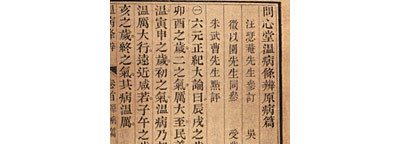 問心堂溫病條辨原病篇
汪瑟菴先生參訂 吳
徵以園先生同參 受
朱武曹先生點評
㊀六元正紀大論曰辰戌之
卯酉之歲二之氣厲大至民善
溫寅申之歲初之氣溫病乃
溫厲大行遠近咸若子午之
亥之歲終之氣其病溫厲
溫病條辨 卷首